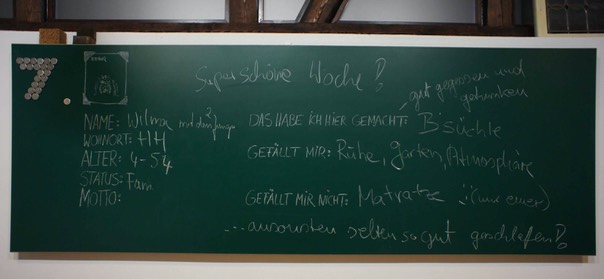 7.
Superschöne Woche!
gut gegessen und
getrunken
NAME: Wilma mit den 2 Jungs
DAS HABE ICH HIER GEMACHT: B'süchle
WOHNORT: HH
GEFÄLLT MIR: Rühe, Garten, Atmosphäre
ALTER: 4-54
STATUS: Fam
MOTTO:
GEFÄLLT MIR NICHT: Matratze :( (nur einer)
... ansonsten selten so gut geschlafen!